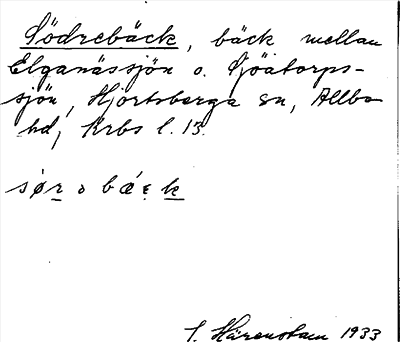 Södrebäck, bäck mellan
Elganässjön o. Sjöatorps-
sjön, Hjortsberga sn, Allbo
hd, Krbs l. 13.
Härenstam 1933